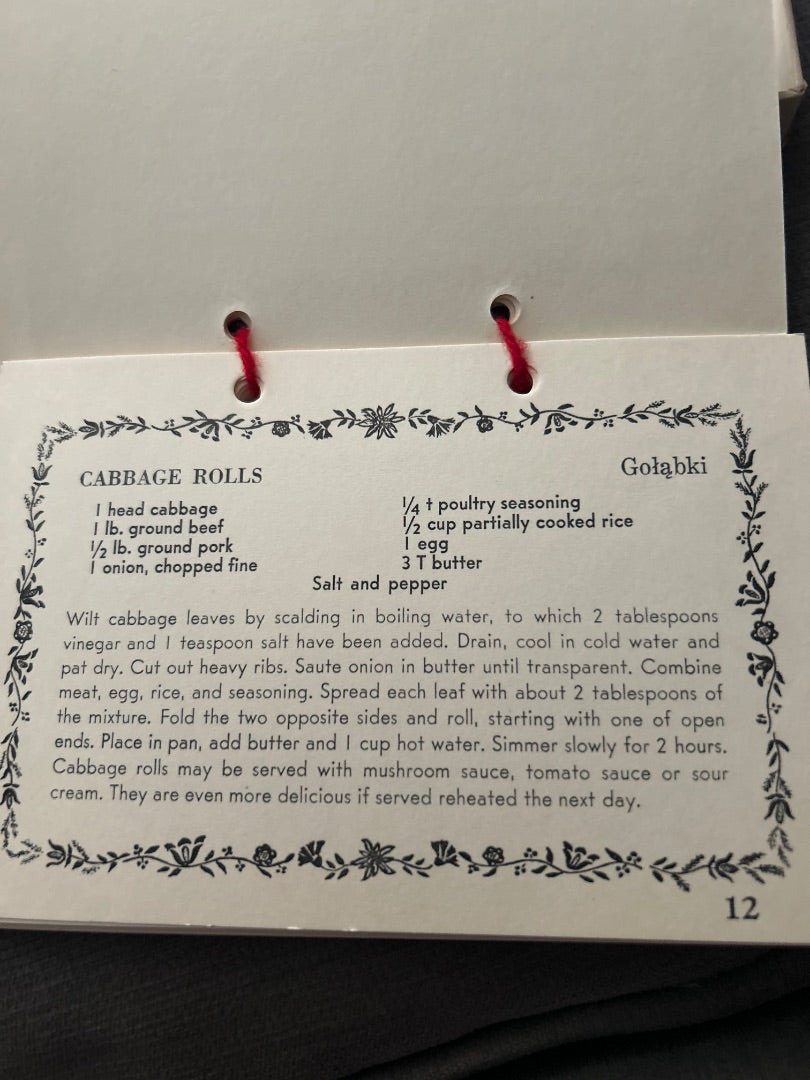 CABBAGE ROLLS
Gołąbki
1 head cabbage
1 lb. ground beef
½ lb. ground pork
1 onion, chopped fine
¼ t poultry seasoning
½ cup partially cooked rice
1 egg
3 T butter
Salt and pepper
Wilt cabbage leaves by scalding in boiling water, to which 2 tablespoons
vinegar and 1 teaspoon salt have been added. Drain, cool in cold water and
pat dry. Cut out heavy ribs. Saute onion in butter until transparent. Combine
meat, egg, rice, and seasoning. Spread each leaf with about 2 tablespoons of
the mixture. Fold the two opposite sides and roll, starting with one of open
ends. Place in pan, add butter and 1 cup hot water. Simmer slowly for 2 hours.
Cabbage rolls may be served with mushroom sauce, tomato sauce or sour
cream. They are even more delicious if served reheated the next day.
12